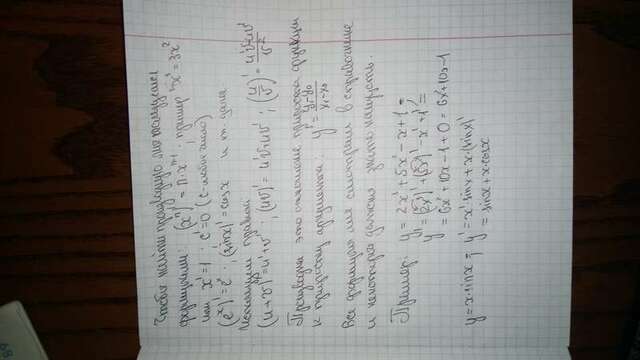 Чтобы найти производную мы пользуемся
формулами: (xⁿ)' = n·xⁿ⁻¹; пример x³' = 3x²
или x' = 1; c' = 0 (c - любое число)
(eˣ)' = eˣ; (sin x)' = cos x и т. дале
Используем правила
(u+v)' = u'+v'; (uv)' = u'v+uv'; (u/v)' = u'v-uv'/v²
Производная это отношение прироста функции
к приросту аргумента: y' = y₁-y₀/x₁-x₀
Все формулы мы смотрим в справочнике
и некоторые должны знать наизусть.
Пример: y = 2x³+5x²-x+1 =
y' = (2x³)'+(5x²)'-x'+1' =
y' = 6x²+10x-1+0 = 6x²+10x-1
y = x·sin x; y' = x'·sin x + x·(sin x)'
= sin x + x·cos x